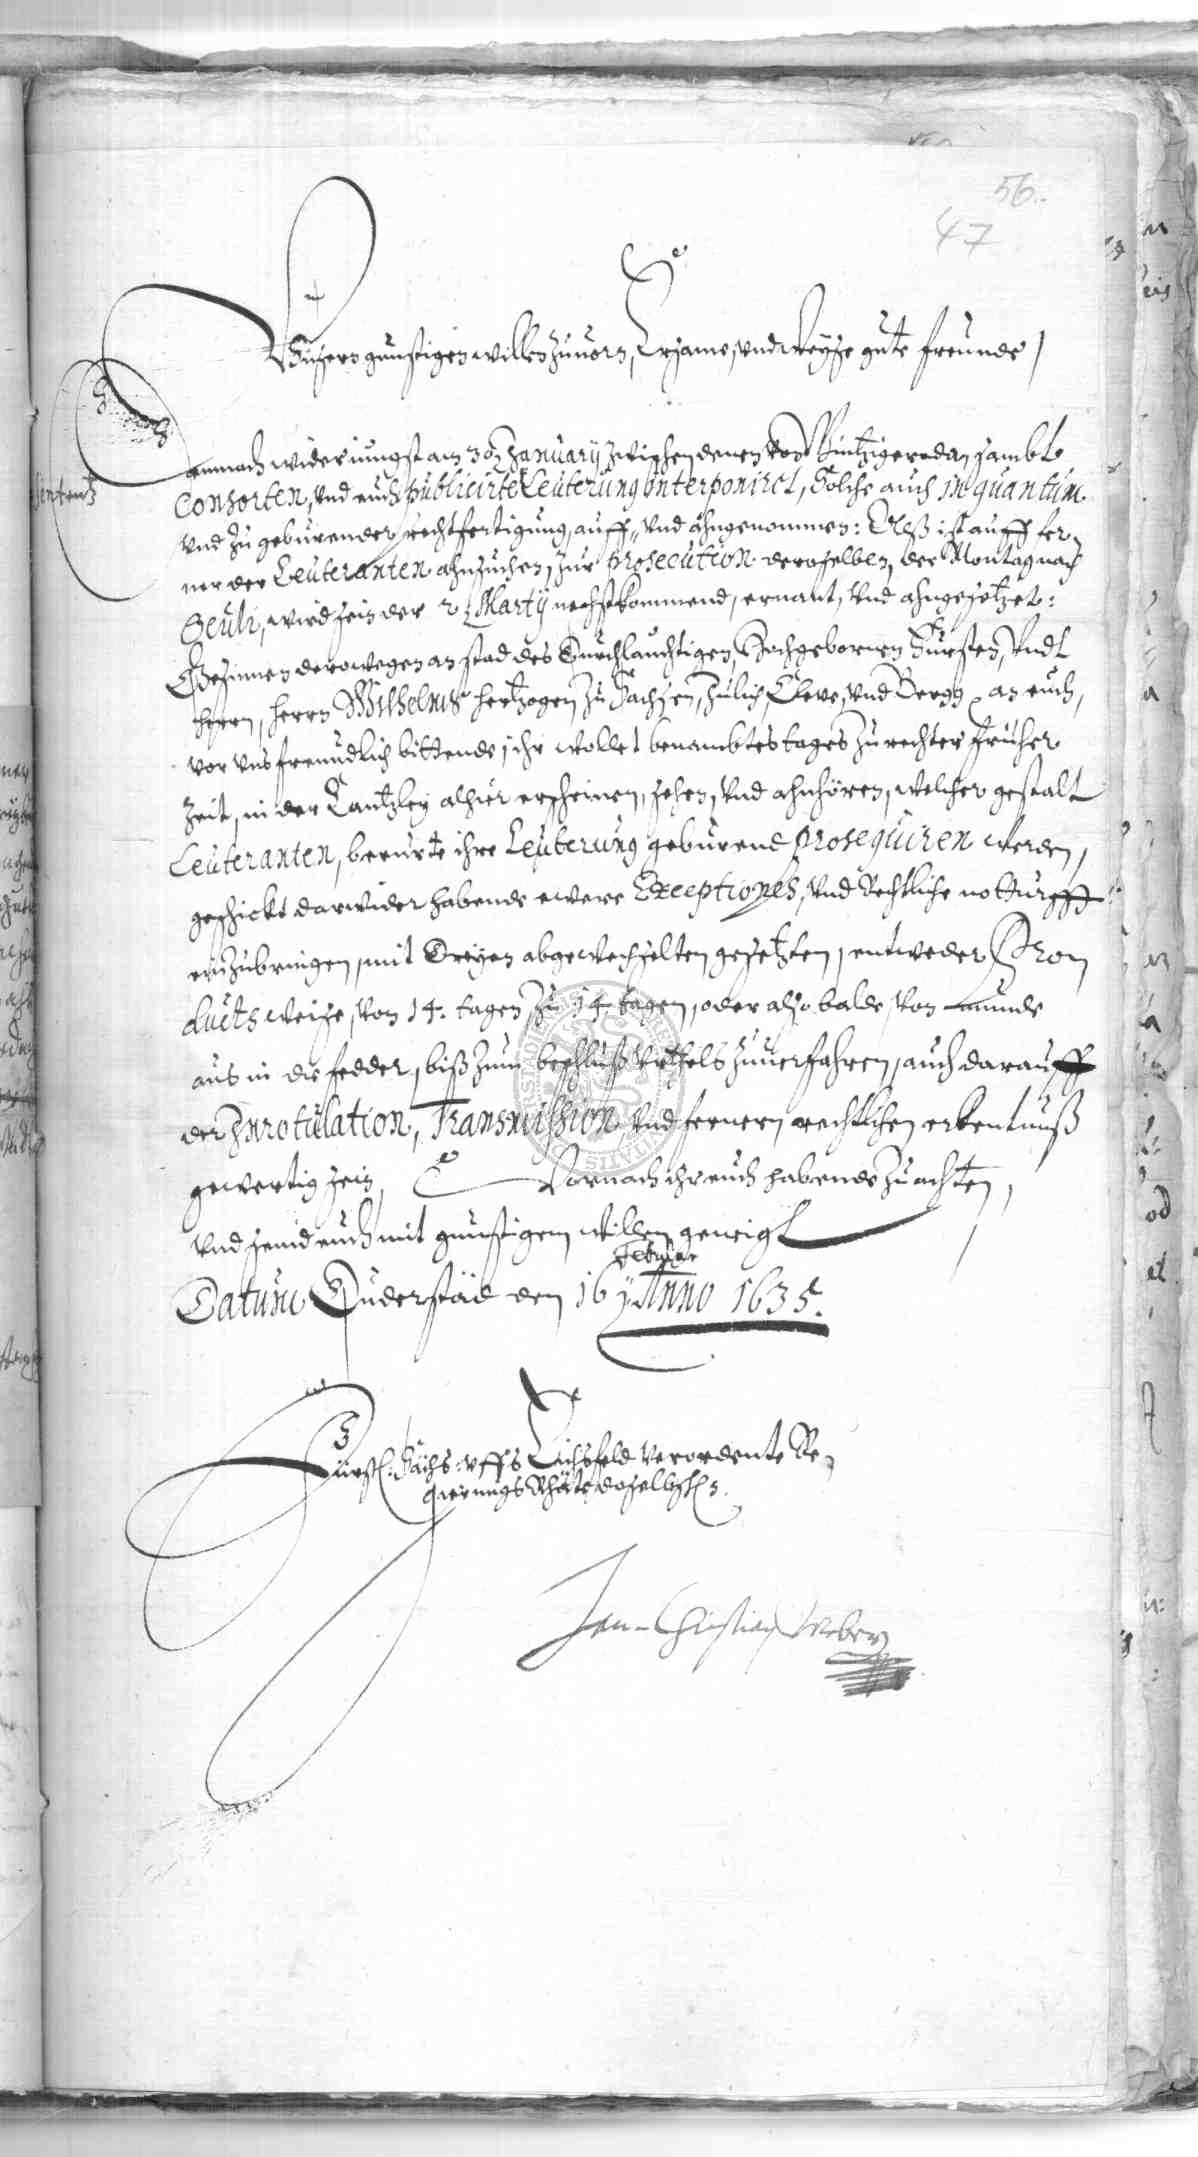 56.
47
Unsern gunstigen willen zuuorn, Ersame, und Weyse gute freunde,
Demnach wider iungst am 30 January zwischen denen von Wintzigeroda, sambt
Consorten, und euch publicirte Leuterung interponiret, Solche auch in quantum
sententz
und zu geburender rechtfertigung, auff- und ahngenommen: Alß ist auff fer-
ner der Leuteranten ahnsuchen, zur prosecution deroselben, der Montag nach
Oculi, wird sein der 2 Martij nechstkommend, ernant, und ahngesetzet:
Gesinnen derowegen an stad des Durchlauchtigen, Hochgebornen Fursten, undt
herrn, herrn Wilhelms hertzogen zu Sachsen, Julich, Cleve, und Bergg an euch,
vor uns freundlich bittende, ihr wollet benambtes tages zu rechter früher
Zeit, in der Cantzley alhier erscheinen, sehen, und ahnhören, welcher gestalt
Leuteranten, berurte ihre Leuterung geburend prosequiren werden,
geschickt darwider habende ewere Exceptiones, und Rechtliche notturfft
einzubringen, mit Dreyen abgewechselten gesetzten, entweder Pro-
ducts weise, von 14. tagen zu 14. tagen, oder also balde, von munde
aus in die fedder, biß zum beschluß Urthels zuuerfahren, auch darauff
der Inrotulation, Transmission und fernern rechtlichen erkentnuß
gewertig sein, Wornach ihr euch habende zu achten,
und seind euch mit gunstigem willen geneigt
Datum Duderstad den 16 Februar Anno 1635.
Fürstl. Sächs. uffs Eichsfeld verordente Re-
gierungs Rhäte daselbsten.
Jan Christian Weber